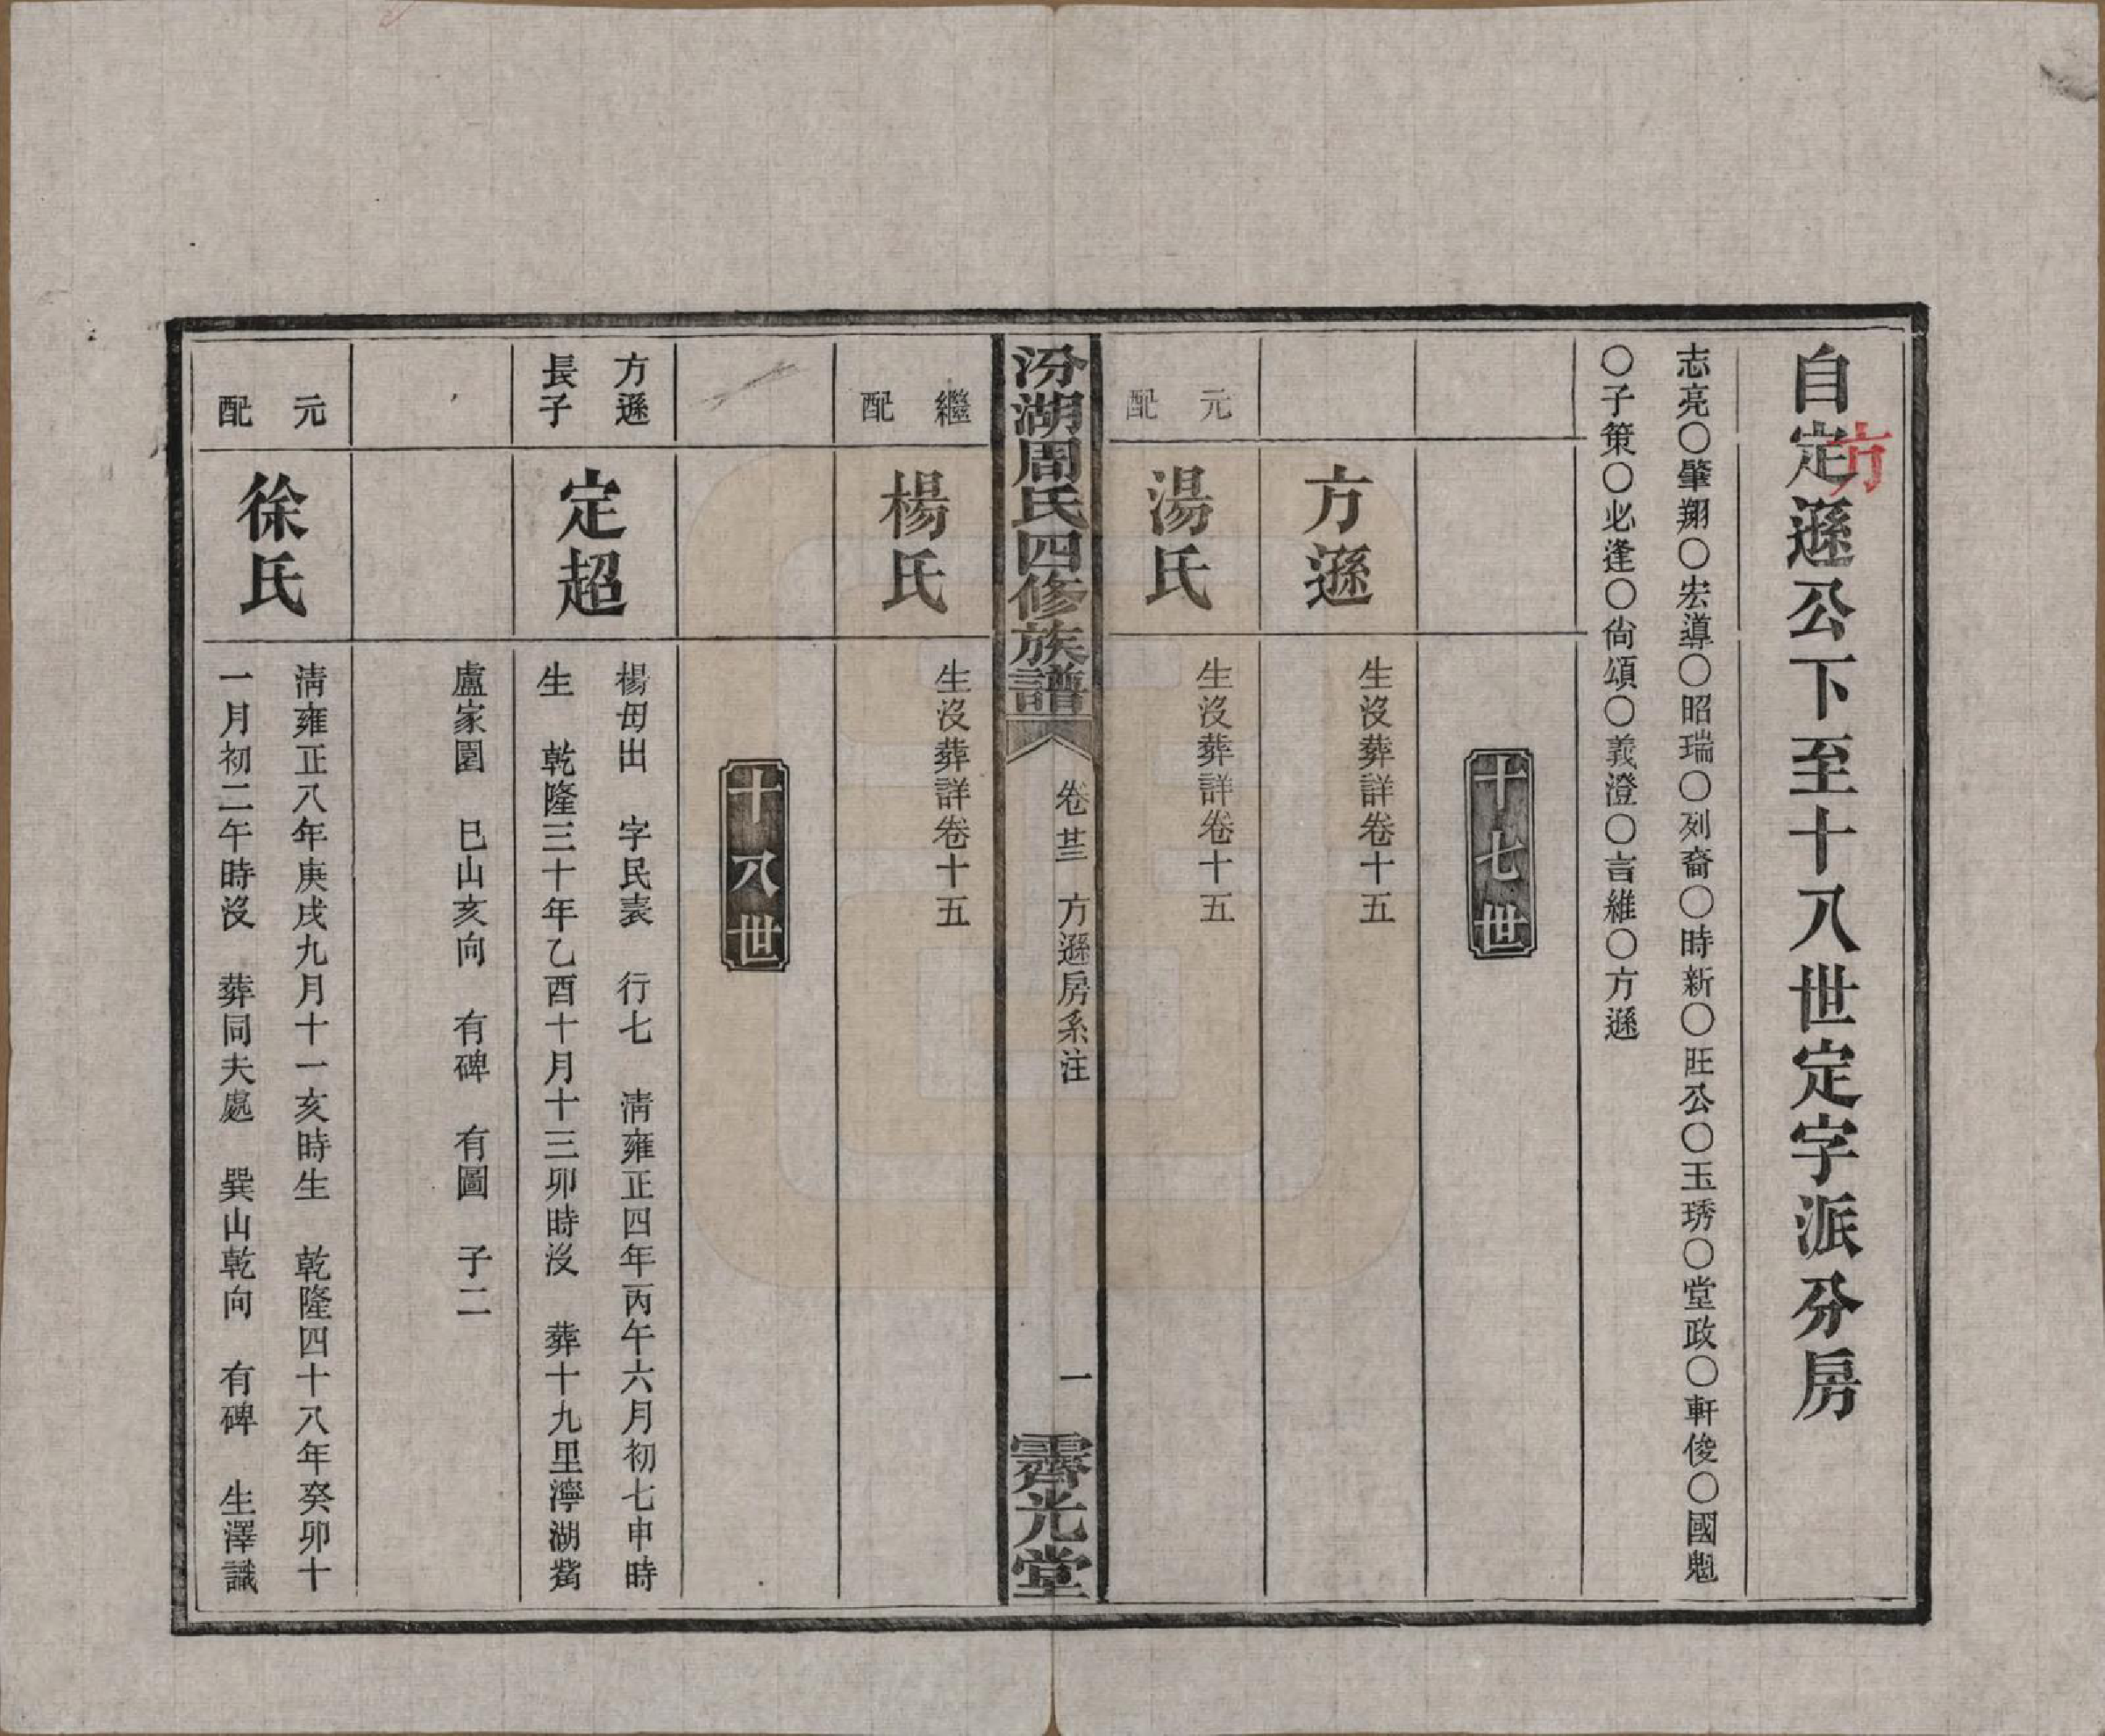 自定遜公下至十八世定字派分房
方
志亮〇肇翔〇宏導〇昭瑞〇列裔〇時新〇旺公〇玉琇〇堂政〇軒俊〇國魁
〇子策〇必逢〇尙頌〇義澄〇言維〇方遜
十七世
方遜
生沒葬詳卷十五
元配
湯氏
生沒葬詳卷十五
汾湖周氏四修族譜
卷廿三 方遜房系注
一
霽光堂
繼配
楊氏
生沒葬詳卷十五
十八世
方遜
長子
定超
楊毋出 字民表 行七 淸雍正四年丙午六月初七申時
生 乾隆三十年乙酉十月十三卯時沒 葬十九里濘湖觜
盧家園 巳山亥向 有碑 有圖 子二
元配
徐氏
淸雍正八年庚戌九月十一亥時生 乾隆四十八年癸卯十
一月初二午時沒 葬同夫處 巽山乾向 有碑 生澤識